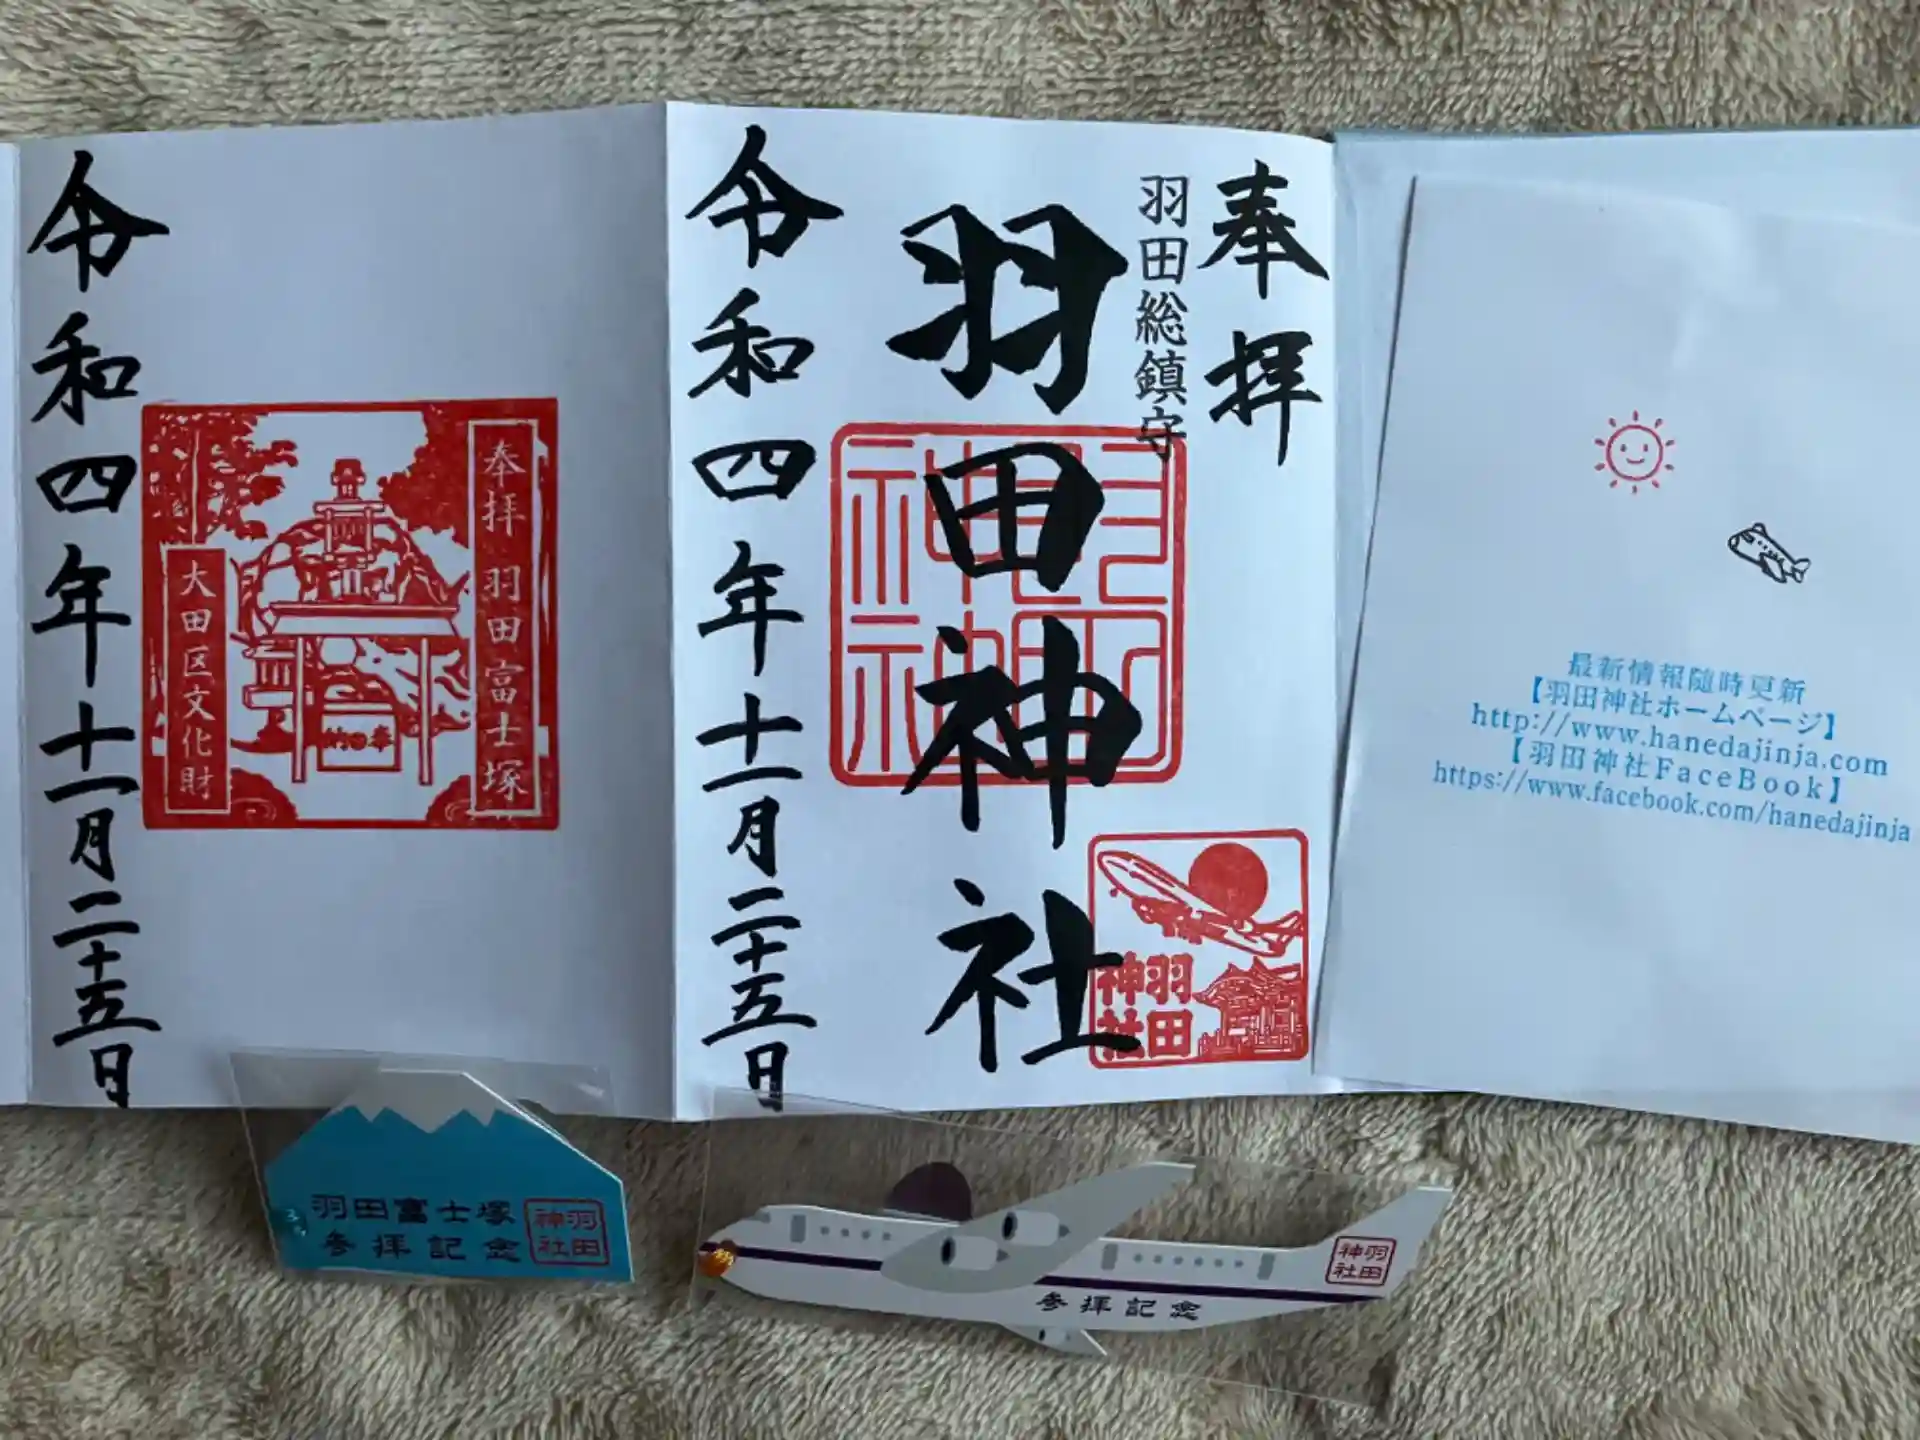 奉拝
羽田総鎮守
羽田神社
羽田神社
羽田
神社
令和四年十一月二十五日
奉拝 羽田富士塚
大田区文化財
奉納
令和四年十一月二十五日
最新情報随時更新
【羽田神社ホームページ】
http://www.hanedajinja.com
【羽田神社FaceBook】
https://www.facebook.com/hanedajinja
羽田富士塚
参拝記念
羽田
神社
参拝記念
羽田
神社